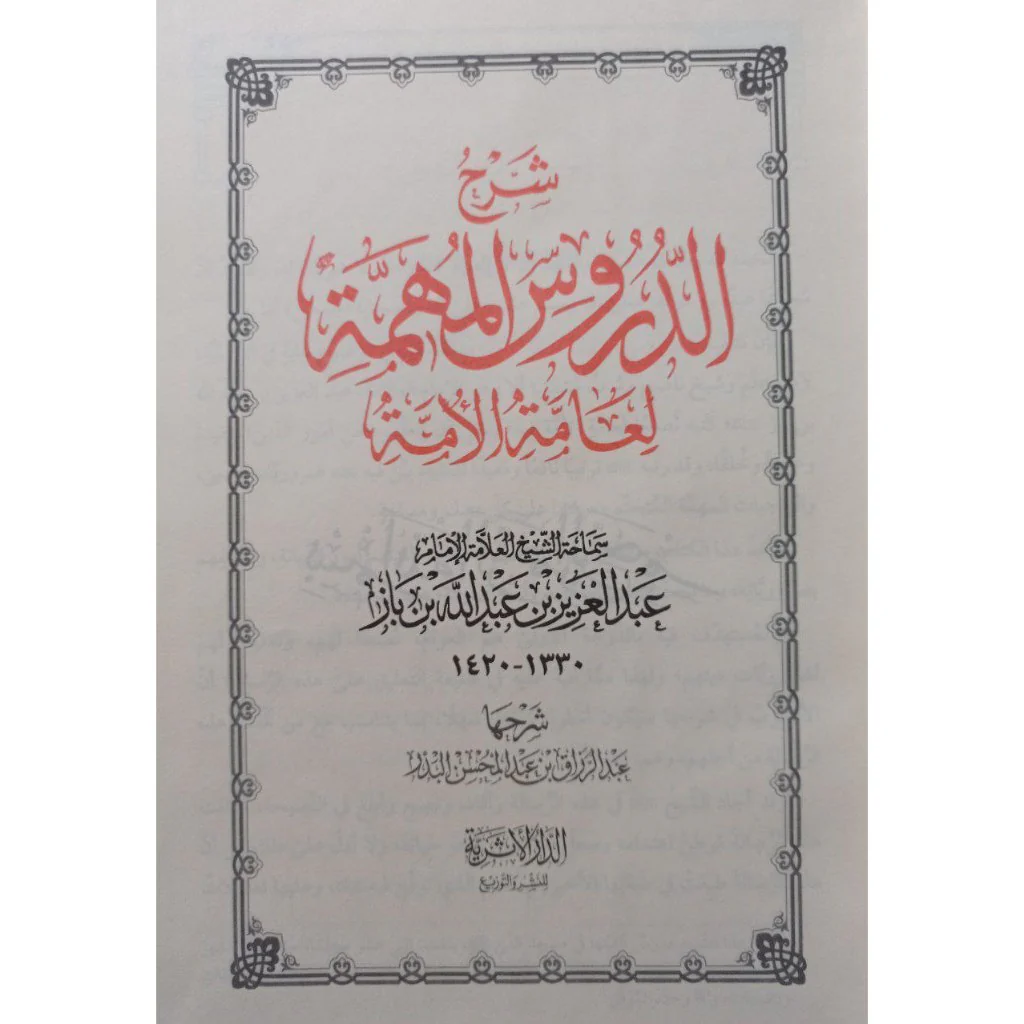 شَرْحُ
الدُّرُوسِ المُهِمَّةِ
لِعَامَّةِ الأُمَّةِ
سماحة الشيخ العلامة الإمام
عبد العزيز بن عبد الله بن باز
١٣٣٠-١٤٢٠
شرحها
عبد الرزاق بن عبد المحسن البدر
الدار الأثرية
للنشر والتوزيع